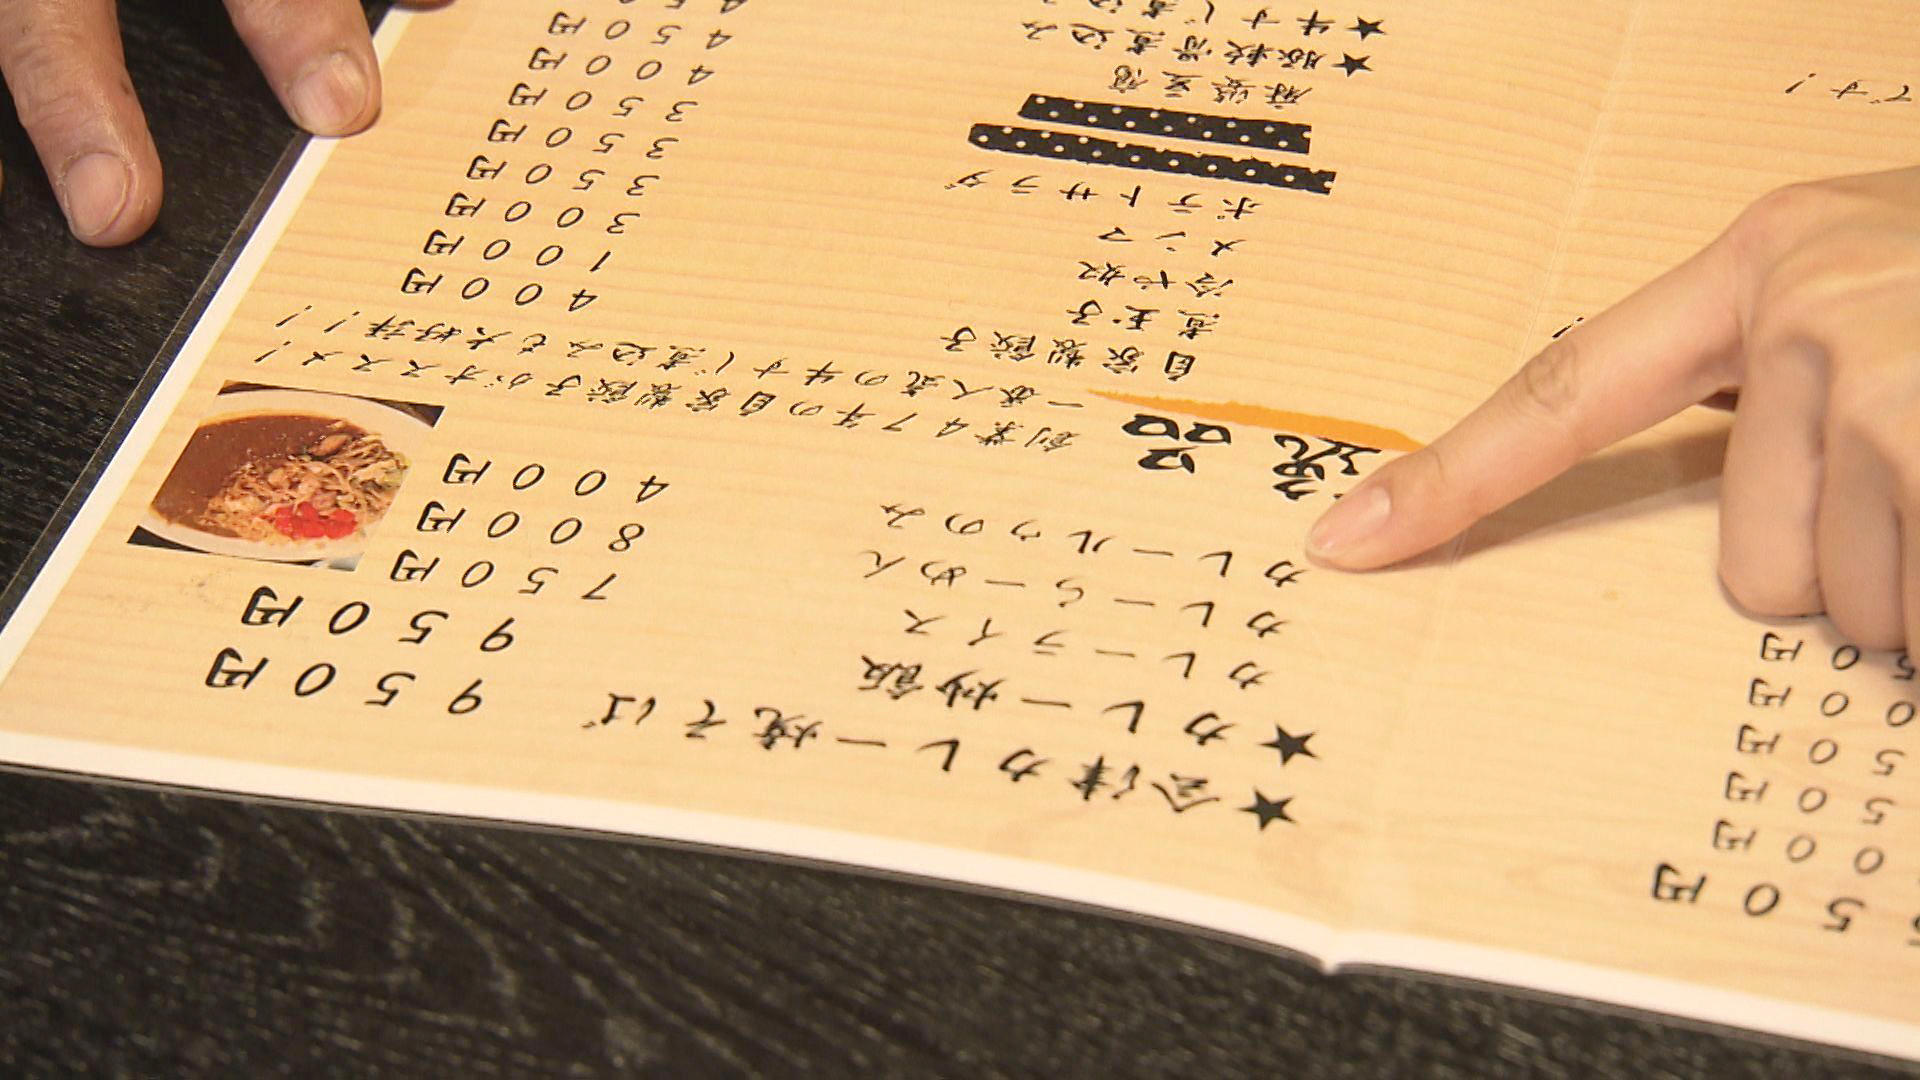 ★会津カレー焼そば 950円
★カレー炒飯 950円
カレーライス 750円
カレーらーめん 800円
カレールウのみ 400円
逸品
創業47年の自家製餃子がオススメ！
一番人気の牛すじ煮込みも大好評！！
自家製餃子 400円
煮玉子 100円
冷や奴 300円
メンマ 350円
ポテトサラダ 350円
350円
400円
麻婆豆腐 450円
★豚軟骨煮込み
★牛すじ煮込
50円
00円
50円
50円
00円
50円
です！